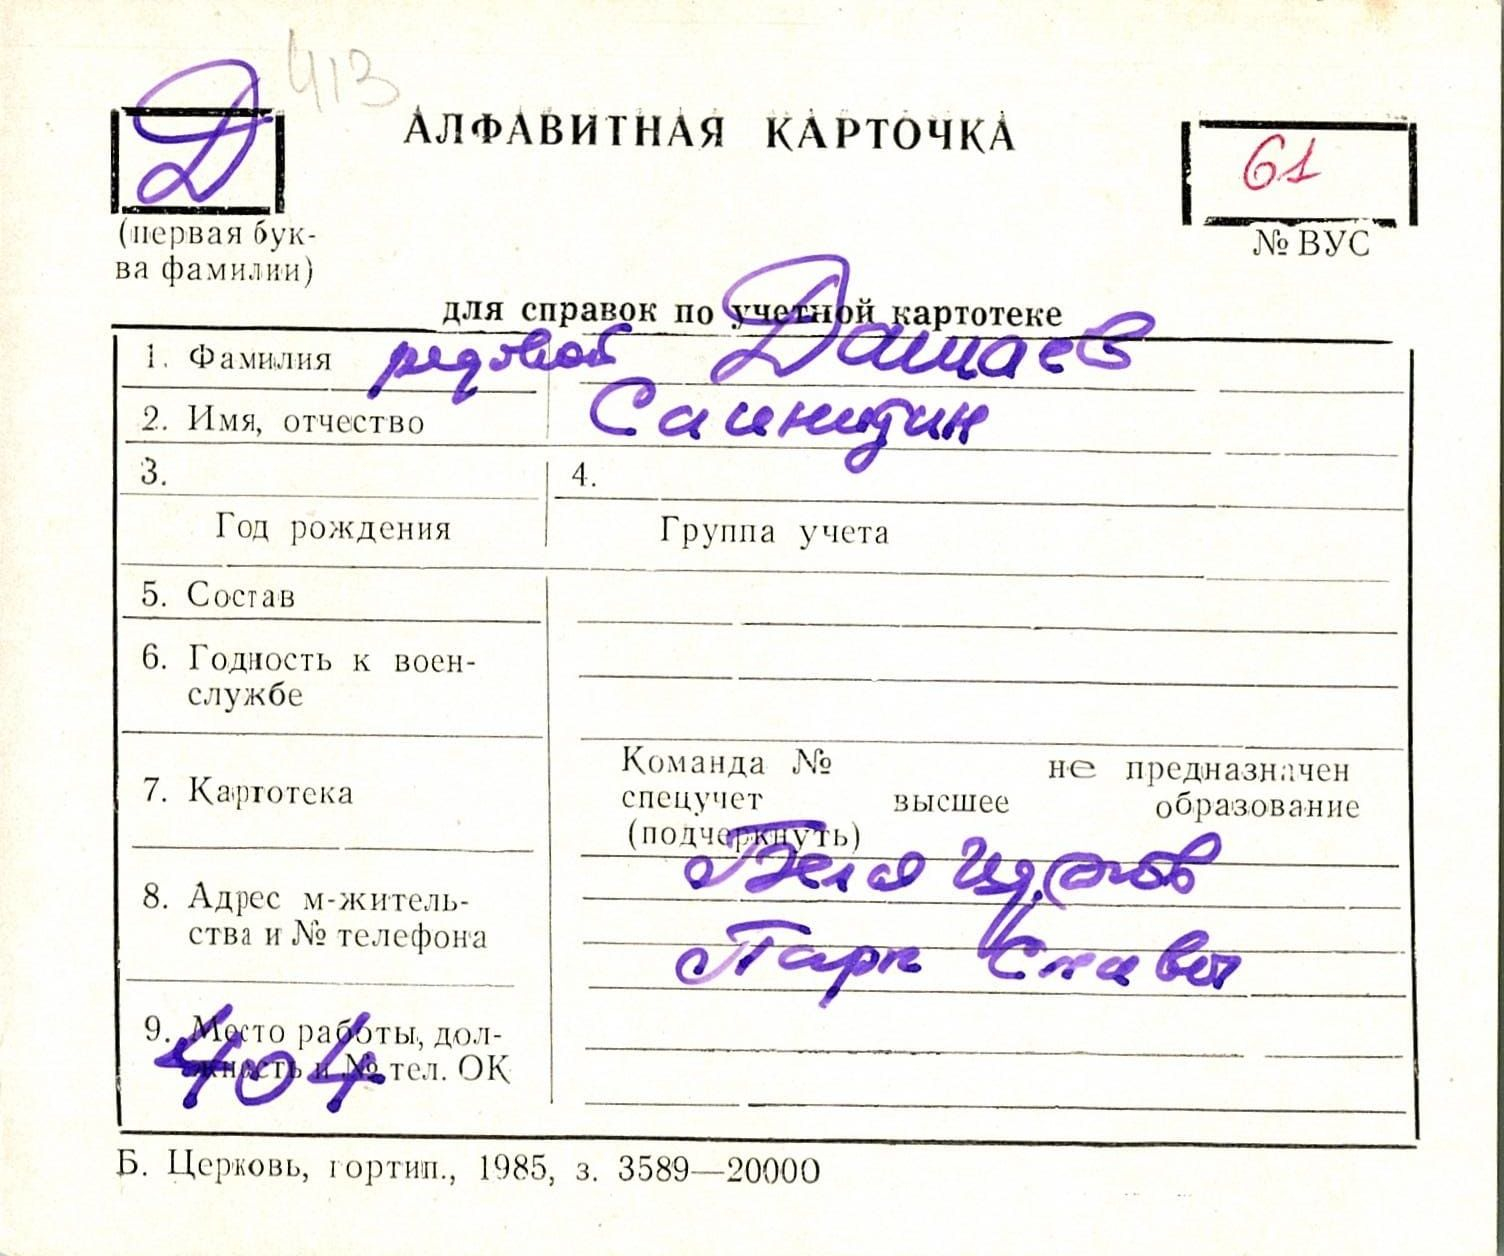 413
Д
АЛФАВИТНАЯ КАРТОЧКА
61
(первая бук-
ва фамилии)
№ ВУС
для справок по учетной картотеке
1. Фамилия рядовой Дашаев
2. Имя, отчество
3.
4.
Год рождения
Группа учета
5. Состав
6. Годность к воен-
службе
7. Картотека
Команда № не предназначен
спецучет высшее образование
(подчеркнуть)
8. Адрес м-житель-
ства и № телефона
Белая Церковь
Парк Славы
9. Место работы, дол-
жность и № тел. ОК
404
Б. Церковь, гортип., 1985, з. 3589—20000